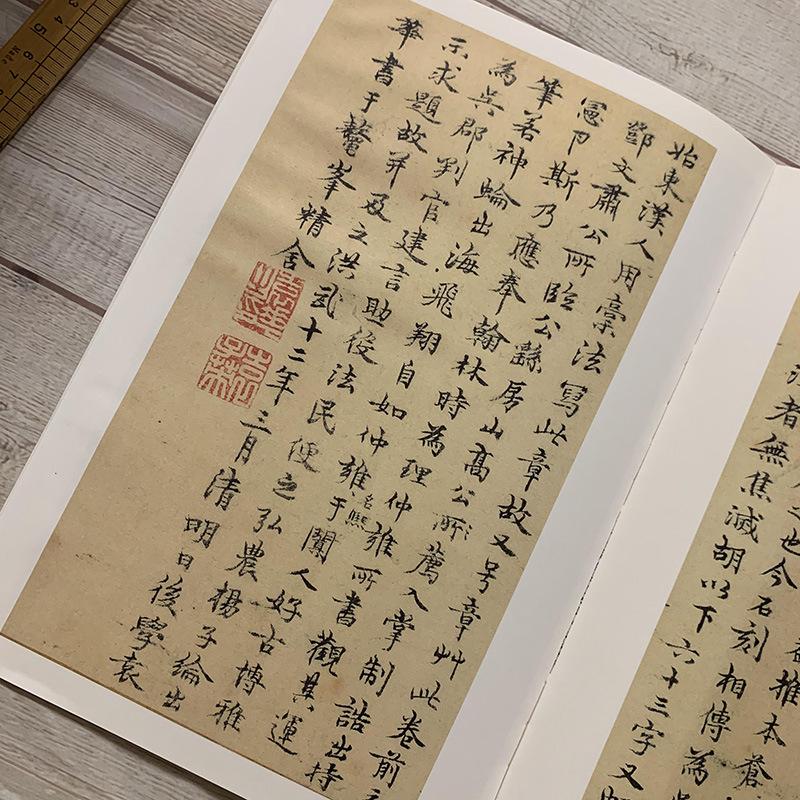 益推本蒼
也今石刻相傳為
者無焦滅胡以下六十三字又
始東漢人用稾法寫此章故又号章艸此卷前元
鄧文肅公所臨公繇房山高公所薦入掌制誥出持
憲卩斯乃應奉翰林時為理仲雍所書觀其運
筆若神蜦出海飛翔自如仲雍名熙于闐人好古博雅
為吳郡判官建言助役法民便之弘農楊子綸出
示求題故并及之洪武十二年三月清明日後學袁
華書于鼇峯精舍
3 4 5 6 7 8 9